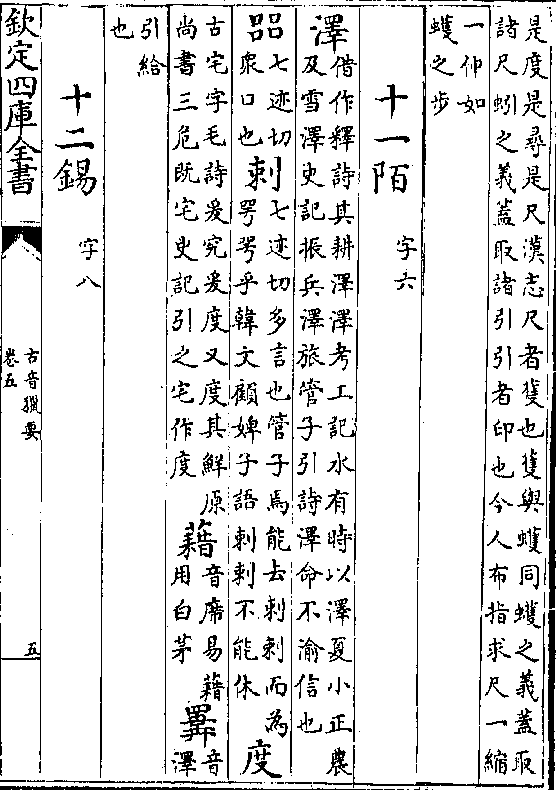 是度是尋是尺漢志尺者蒦也蒦與蠖同蠖之義蓋取
諸尺蚓之義蓋取諸引引者印也今人布指求尺一縮
一伸如
蠖之步
十一陌 字六
澤 借作釋詩其耕澤澤考工記水有時以澤夏小正農
及雪澤史記振兵澤旅管子引詩澤命不渝信也
㗊 七迹切
衆口也
刺 七迹切多言也管子焉能去刺刺而為
咢咢乎韓文顧婢子語刺刺不能休
度
古宅字毛詩爰究爰度又度其鮮原
尚書三危既宅史記引之宅作度
藉 音席易藉
用白茅
𢍰 音澤
引給
也
十二錫 字八
欽定四庫全書
古音獵要
卷五
五